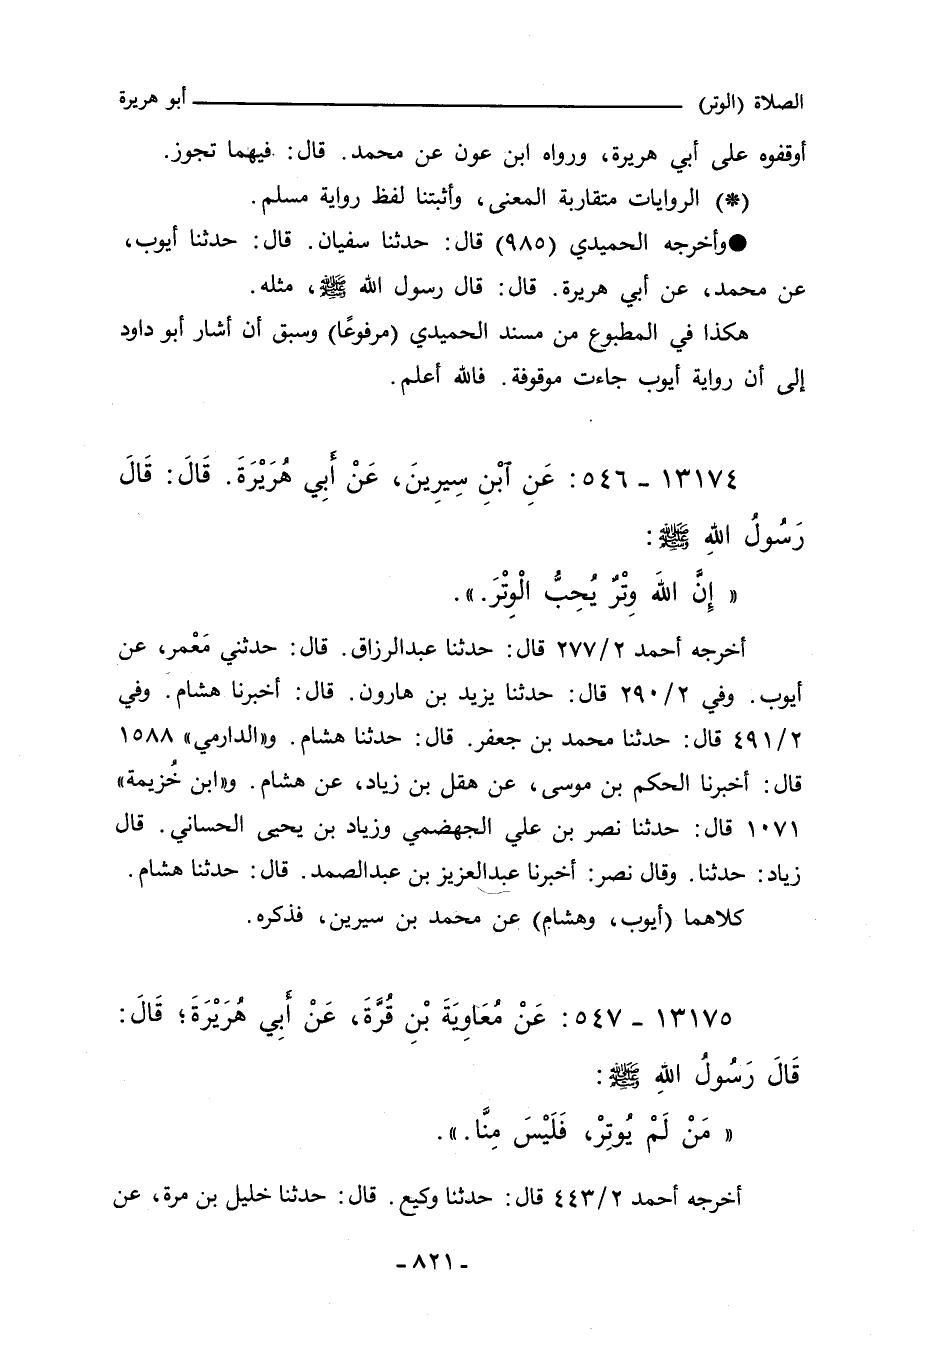 الصلاة (الوتر) ــــــــــــــــــــ أبو هريرة
أوقفوه على أبي هريرة، ورواه ابن عون عن محمد. قال: فيهما تجوز.
(*) الروايات متقاربة المعنى، وأثبتنا لفظ رواية مسلم.
●وأخرجه الحميدي (٩٨٥) قال: حدثنا سفيان. قال: حدثنا أيوب،
عن محمد، عن أبي هريرة. قال: قال رسول الله ﷺ، مثله.
هكذا في المطبوع من مسند الحميدي (مرفوعًا) وسبق أن أشار أبو داود
إلى أن رواية أيوب جاءت موقوفة. فالله أعلم.
١٣١٧٤ ـ ٥٤٦: عَنِ ٱبْنِ سِيرِينَ، عَنْ أَبِي هُرَيْرَةَ. قَالَ: قَالَ
رَسُولُ اللهِ ﷺ:
« إِنَّ اللهَ وِتْرٌ يُحِبُّ الْوِتْرَ.».
أخرجه أحمد ٢/٢٧٧ قال: حدثنا عبدالرزاق. قال: حدثني مَعْمر، عن
أيوب. وفي ٢/٢٩٠ قال: حدثنا يزيد بن هارون. قال: أخبرنا هشام. وفي
٢/٤٩١ قال: حدثنا محمد بن جعفر. قال: حدثنا هشام. و«الدارمي» ١٥٨٨
قال: أخبرنا الحكم بن موسى، عن هقل بن زياد، عن هشام. و«ابن خُزيمة»
١٠٧١ قال: حدثنا نصر بن علي الجهضمي وزياد بن يحيى الحساني. قال
زياد: حدثنا. وقال نصر: أخبرنا عبدالعزيز بن عبدالصمد. قال: حدثنا هشام.
كلاهما (أيوب، وهشام) عن محمد بن سيرين، فذكره.
١٣١٧٥ ـ ٥٤٧: عَنْ مُعَاوِيَةَ بْنِ قُرَّةَ، عَنْ أَبِي هُرَيْرَةَ؛ قَالَ:
قَالَ رَسُولُ اللهِ ﷺ:
« مَنْ لَمْ يُوتِرْ، فَلَيْسَ مِنَّا.».
أخرجه أحمد ٢/٤٤٣ قال: حدثنا وكيع. قال: حدثنا خليل بن مرة، عن
ـ ٨٢١ ـ